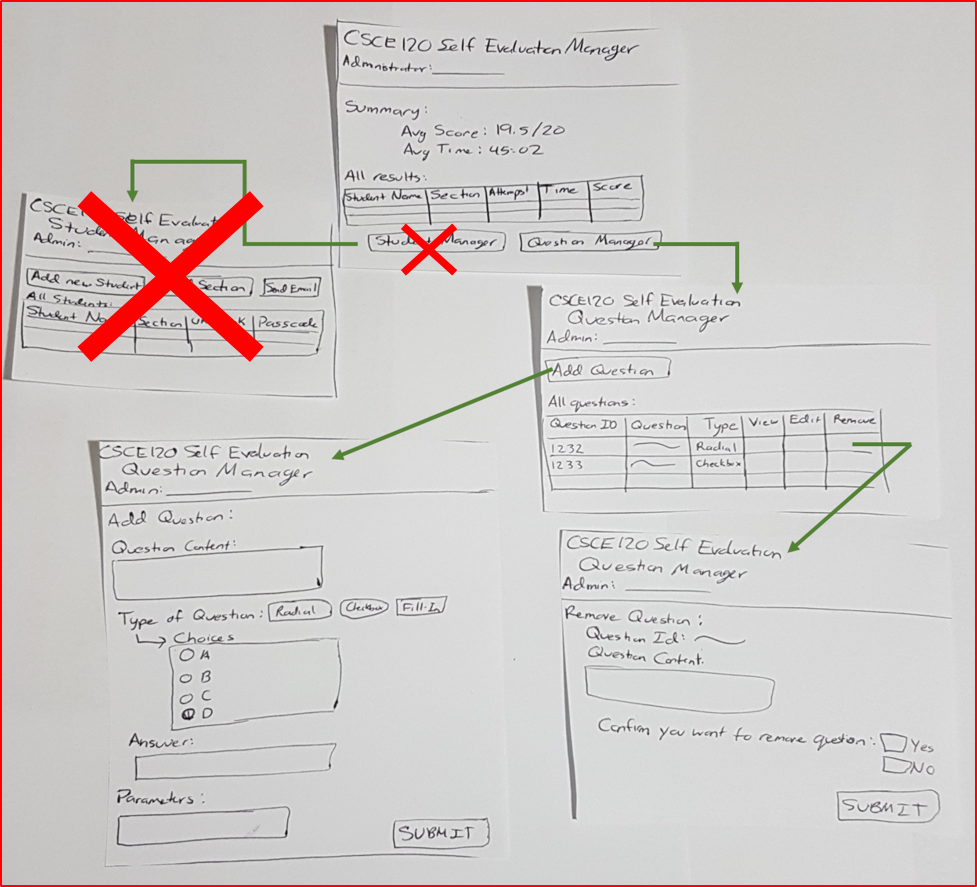 CSCE120 Self Evaluaton Manager
Admnistrator:
Summary:
Avg Score: 19.5/20
Avg Time: 45:02
All results:
Student Name Section Attempst Time Score
Student Manager Question Manager
CSCE120 Self Evaluation
Student Manager
Admin:
Add new Student Section Send Email
All Students:
Student Section Passcode
CSCE120 Self Evaluation
Queston Manager
Admin:
Add Question
All questions:
Queston ID Question Type View Edit Remove
1232 Radial
1233 Checkbox
CSCE120 Self Evaluation
Question Manager
Admin:
Add Question:
Question Content:
Type of Question: Radial Checkbox Fill-In
Choices
A
B
C
D
Answer:
Parameters:
SUBMIT
CSCE120 Self Evaluation
Question Manager
Admin:
Remove Question:
Question Id:
Question Content:
Confirm you want to remove question: Yes
No
SUBMIT